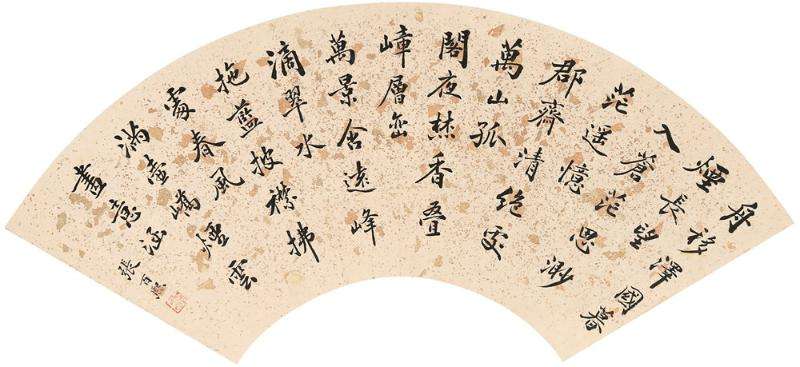 舟移澤國暮
煙長望
入蒼茫思渺
茫遥憶
郡齊清絶處
萬山孤
閣夜焚香疊
嶂層巒
萬景含遠峰
滴翠水
拖藍披襟拂
處春風
滿壺嶠煙雲
畫意涵
張百熙